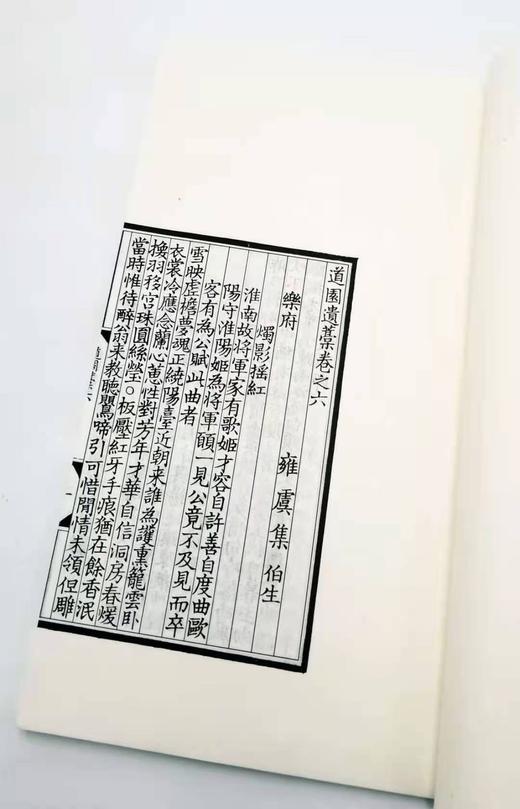 道園遺藁卷之六
樂府 雍虞集伯生
燭影搖紅
淮南故將軍家有歌姬才容自許善自度曲歐
陽守淮陽姬為將軍頤一見公竟不及見而卒
客有為公賦此曲者
雪映虛檐夢魂正繞陽臺近朝来誰為護熏籠雲卧
衣裳冷應念蘭心蕙性對芳年才華自信洞房春煖
換羽移宮珠圓絲瑩○板壓紅牙手痕猶在餘香泯
當時惟待醉翁来教聽鸎啼引可惜閒情未領但雕